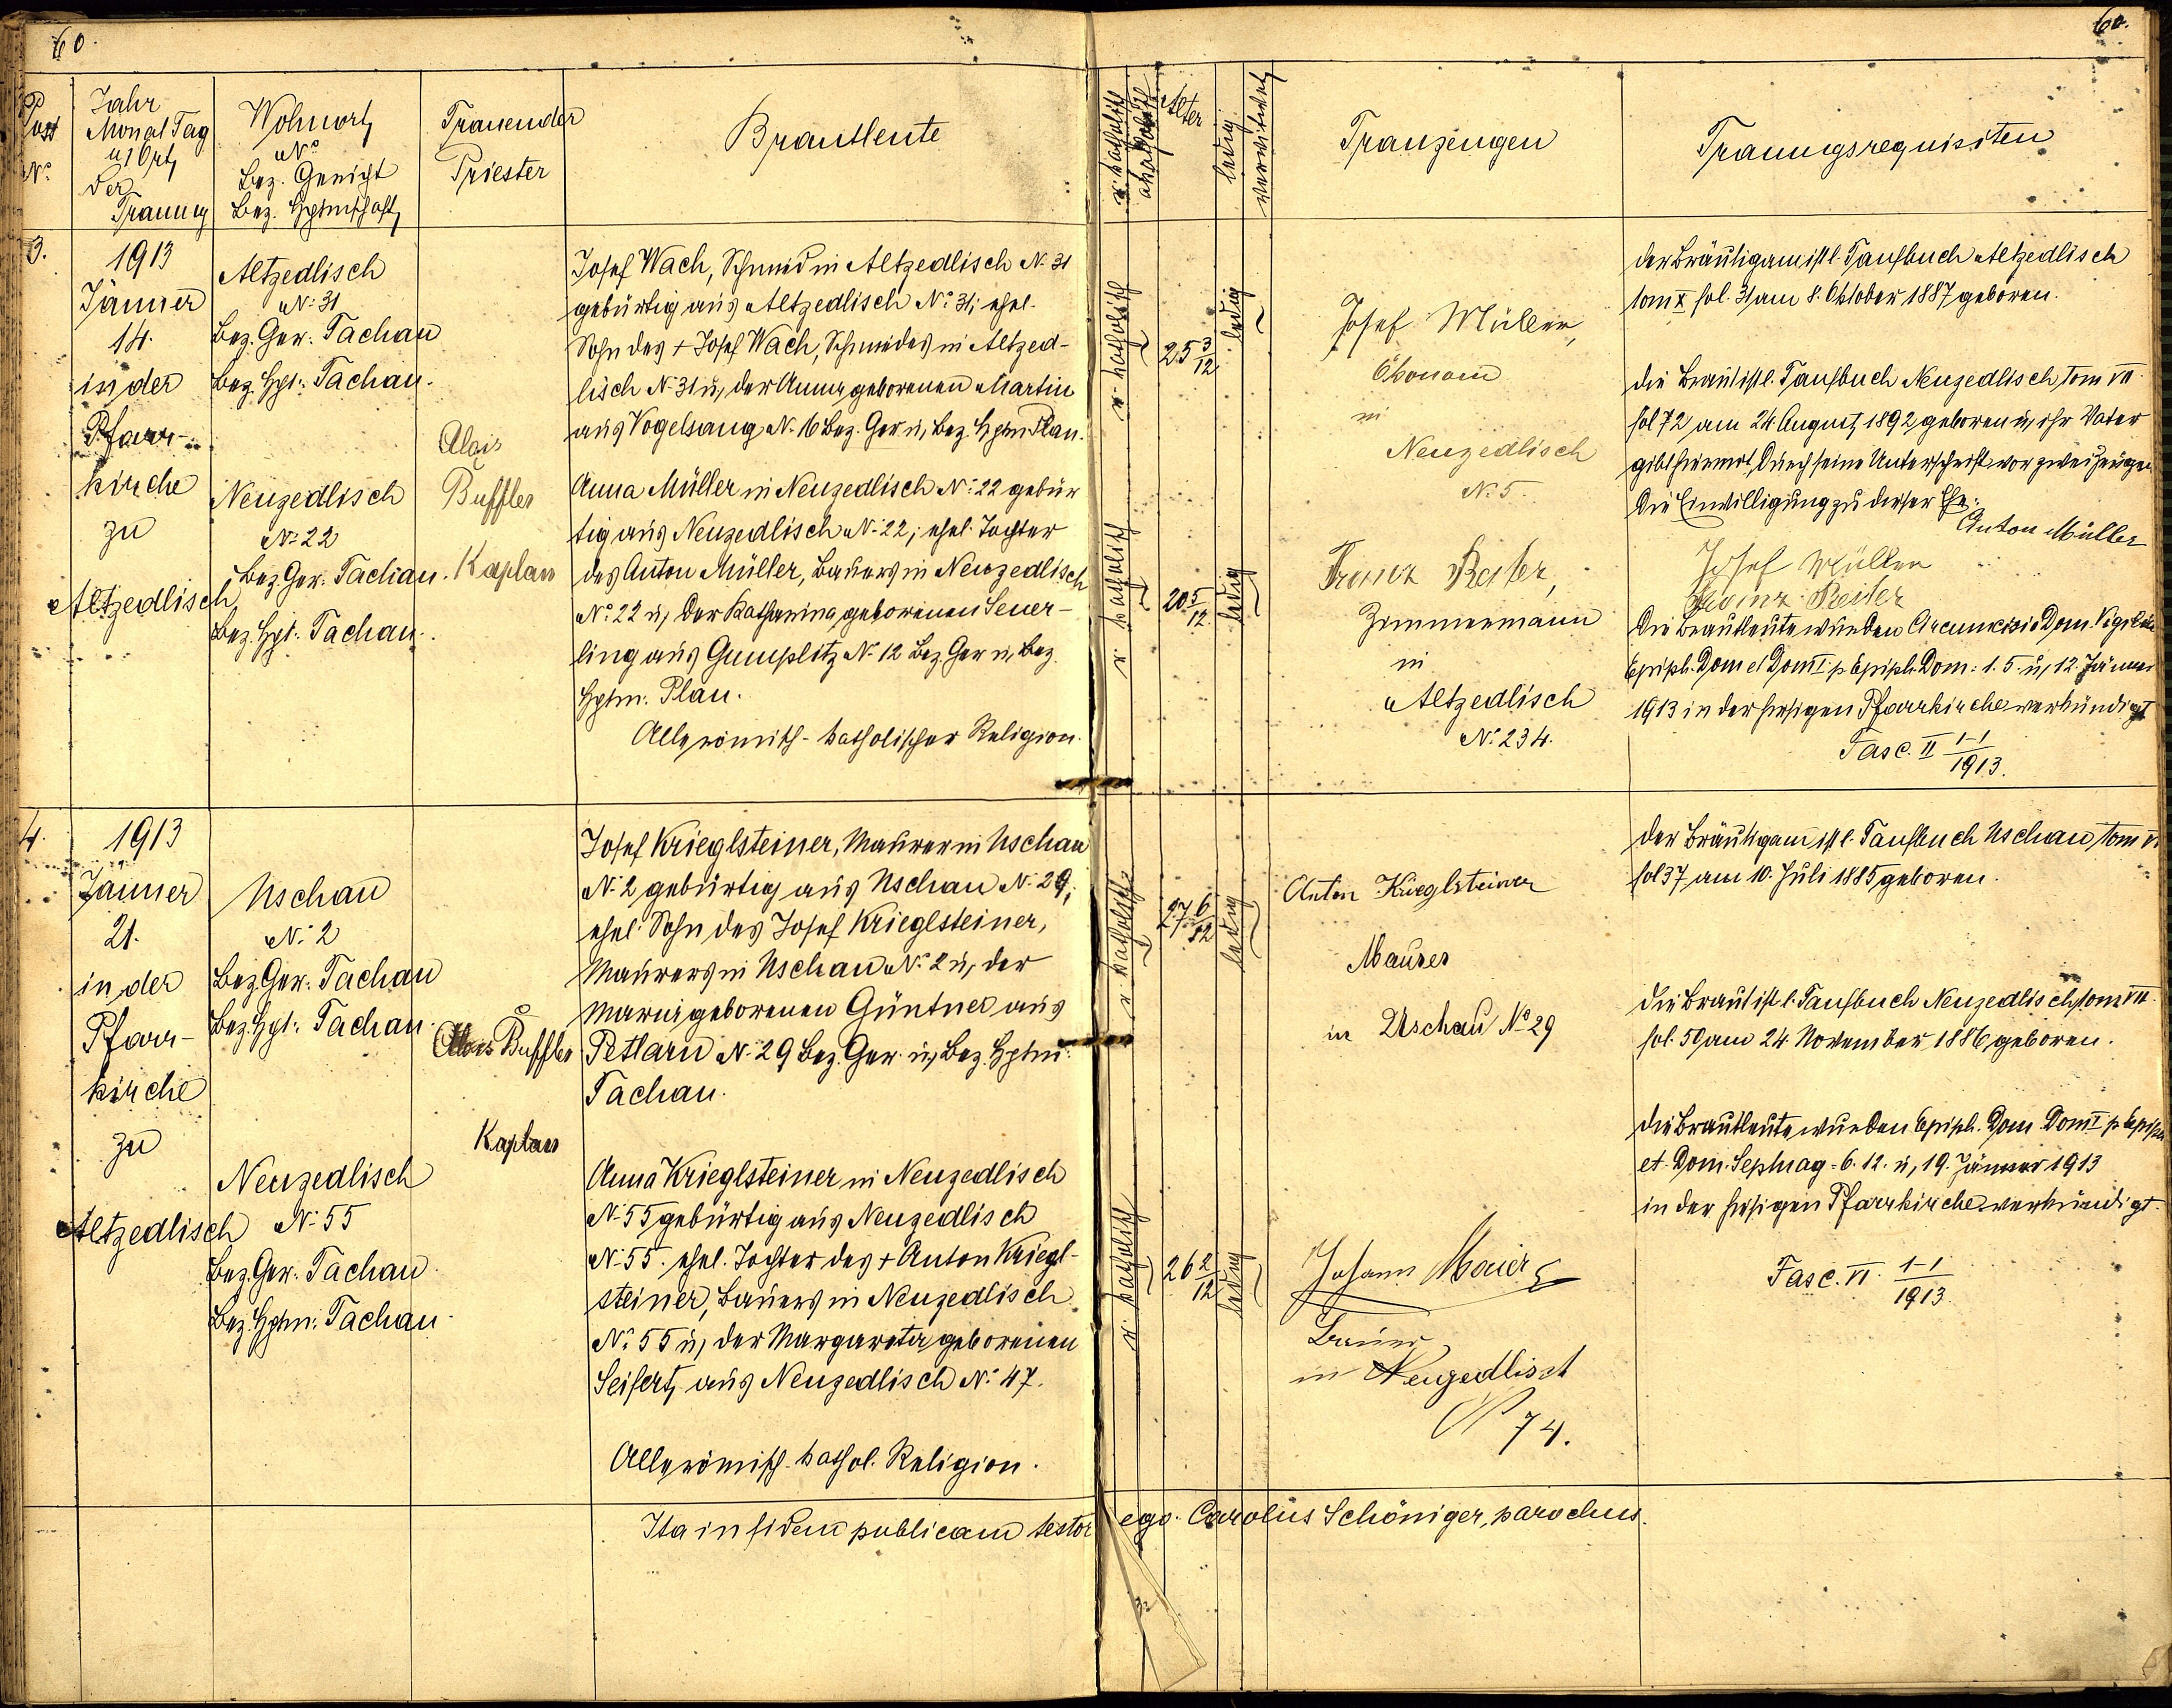 60.
60.
Post
No.
Jahr
Monat Tag
u. Ort
der
Trauung
Wohnort
No
Bez. Gericht
Bez. Hptmschaft
Trauender
Priester
Brautleute
r. katholisch
akatholisch
Alter
ledig
verwitwet
Trauzeugen
Trauungsrequisiten
3.
1913
Jänner
14.
in der
Pfarr-
kirche
zu
Altzedlisch
Altzedlisch
No: 31
Bez. Ger. Tachau
Bez. Hpt. Tachau.
Neuzedlisch
No: 22
Bez. Ger. Tachau.
Bez. Hpt. Tachau.
Alois
Buffler
Kaplan
Josef Wach, Schmied in Altzedlisch No. 31
gebürtig aus Altzedlisch No: 31; ehel.
Sohn des + Josef Wach, Schmiedes in Altzed-
lisch No. 31 u. der Anna geborenen Martin
aus Vogelsang No. 16 Bez. Ger. u. Bez. Hptm Plan.
Anna Müller in Neuzedlisch No: 22 gebür
tig aus Neuzedlisch No. 22; ehel. Tochter
des Anton Müller, Bauers in Neuzedlisch
No: 22 u. der Katharina geborenen Seuer-
ling aus Gumplitz No. 12 Bez. Ger. u. Bez.
Hptm. Plan.
Alle römisch-katholischer Religion.
r. katholisch
25 3/12
ledig
r. katholisch
20 5/12
ledig
Josef Müller,
Ökonom
in
Neuzedlisch
No. 5.
Franz Reiter,
Zimmermann
in
Altzedlisch
No: 234.
Der Bräutigam ist l. Taufbuch Altzedlisch
tom X fol. 31 am 8. Oktober 1887 geboren.
Die Braut ist l. Taufbuch Neuzedlisch, tom VII
fol 72 am 24 August 1892 geboren u. ihr Vater
gibt hiermit durch seine Unterschrift vor zwei Zeugen
Die Einwilligung zu dieser Ehe:
Anton Müller
Josef Müller
Franz Reiter
Die Brautleute wurden Circumcisio Dom. Vigilia
Epiph. Dom et Dom I. p. Epiph. Dom: 1. 5. u. 12. Jänner
1913 in der hiesigen Pfarrkirche verkündigt
Fasc. II 1-1/1913.
4.
1913
Jänner
21.
in der
Pfarr-
kirche
zu
Altzedlisch
Uschau
No: 2
Bez. Ger. Tachau
Bez. Hpt. Tachau.
Neuzedlisch
No: 55
Bez. Ger. Tachau.
Bez. Hptm. Tachau.
Alois Buffler
Kaplan
Josef Krieglsteiner, Maurer in Uschau
No. 2 gebürtig aus Uschau No. 29;
ehel. Sohn des Josef Krieglsteiner,
Maurers in Uschau No. 2 u. der
Maria geborenen Güntner aus
Petlarn No. 29 Bez. Ger. u. Bez. Hptm.
Tachau.
Anna Krieglsteiner in Neuzedlisch
No. 55 gebürtig aus Neuzedlisch
No. 55. ehel. Tochter des + Anton Kriegl-
steiner, Bauers in Neuzedlisch
No: 55 u. der Margareta geborenen
Seifert, aus Neuzedlisch No: 47.
Alle römisch-kathol. Religion.
r. katholisch
27 6/12
ledig
r. katholisch
26 2/12
ledig
Anton Krieglsteiner
Maurer
in Uschau No 29
Johann Maier
Bauer
in Neuzedlisch
No 74.
Der Bräutigam ist l. Taufbuch Uschau tom VI
fol 37 am 10. Juli 1885 geboren.
Die Braut ist l. Taufbuch Neuzedlisch, tom VII.
fol. 50 am 24 November 1886 geboren.
Die Brautleute wurden Epiph. Dom. Dom I p Epiph
et. Dom. Septuag = 6. 12. u. 19. Jänner 1913
in der hiesigen Pfarrkirche verkündigt.
Fasc. VI. 1-1/1913.
Ita in fidem publicam testor ego Carolus Schöniger, parochus.